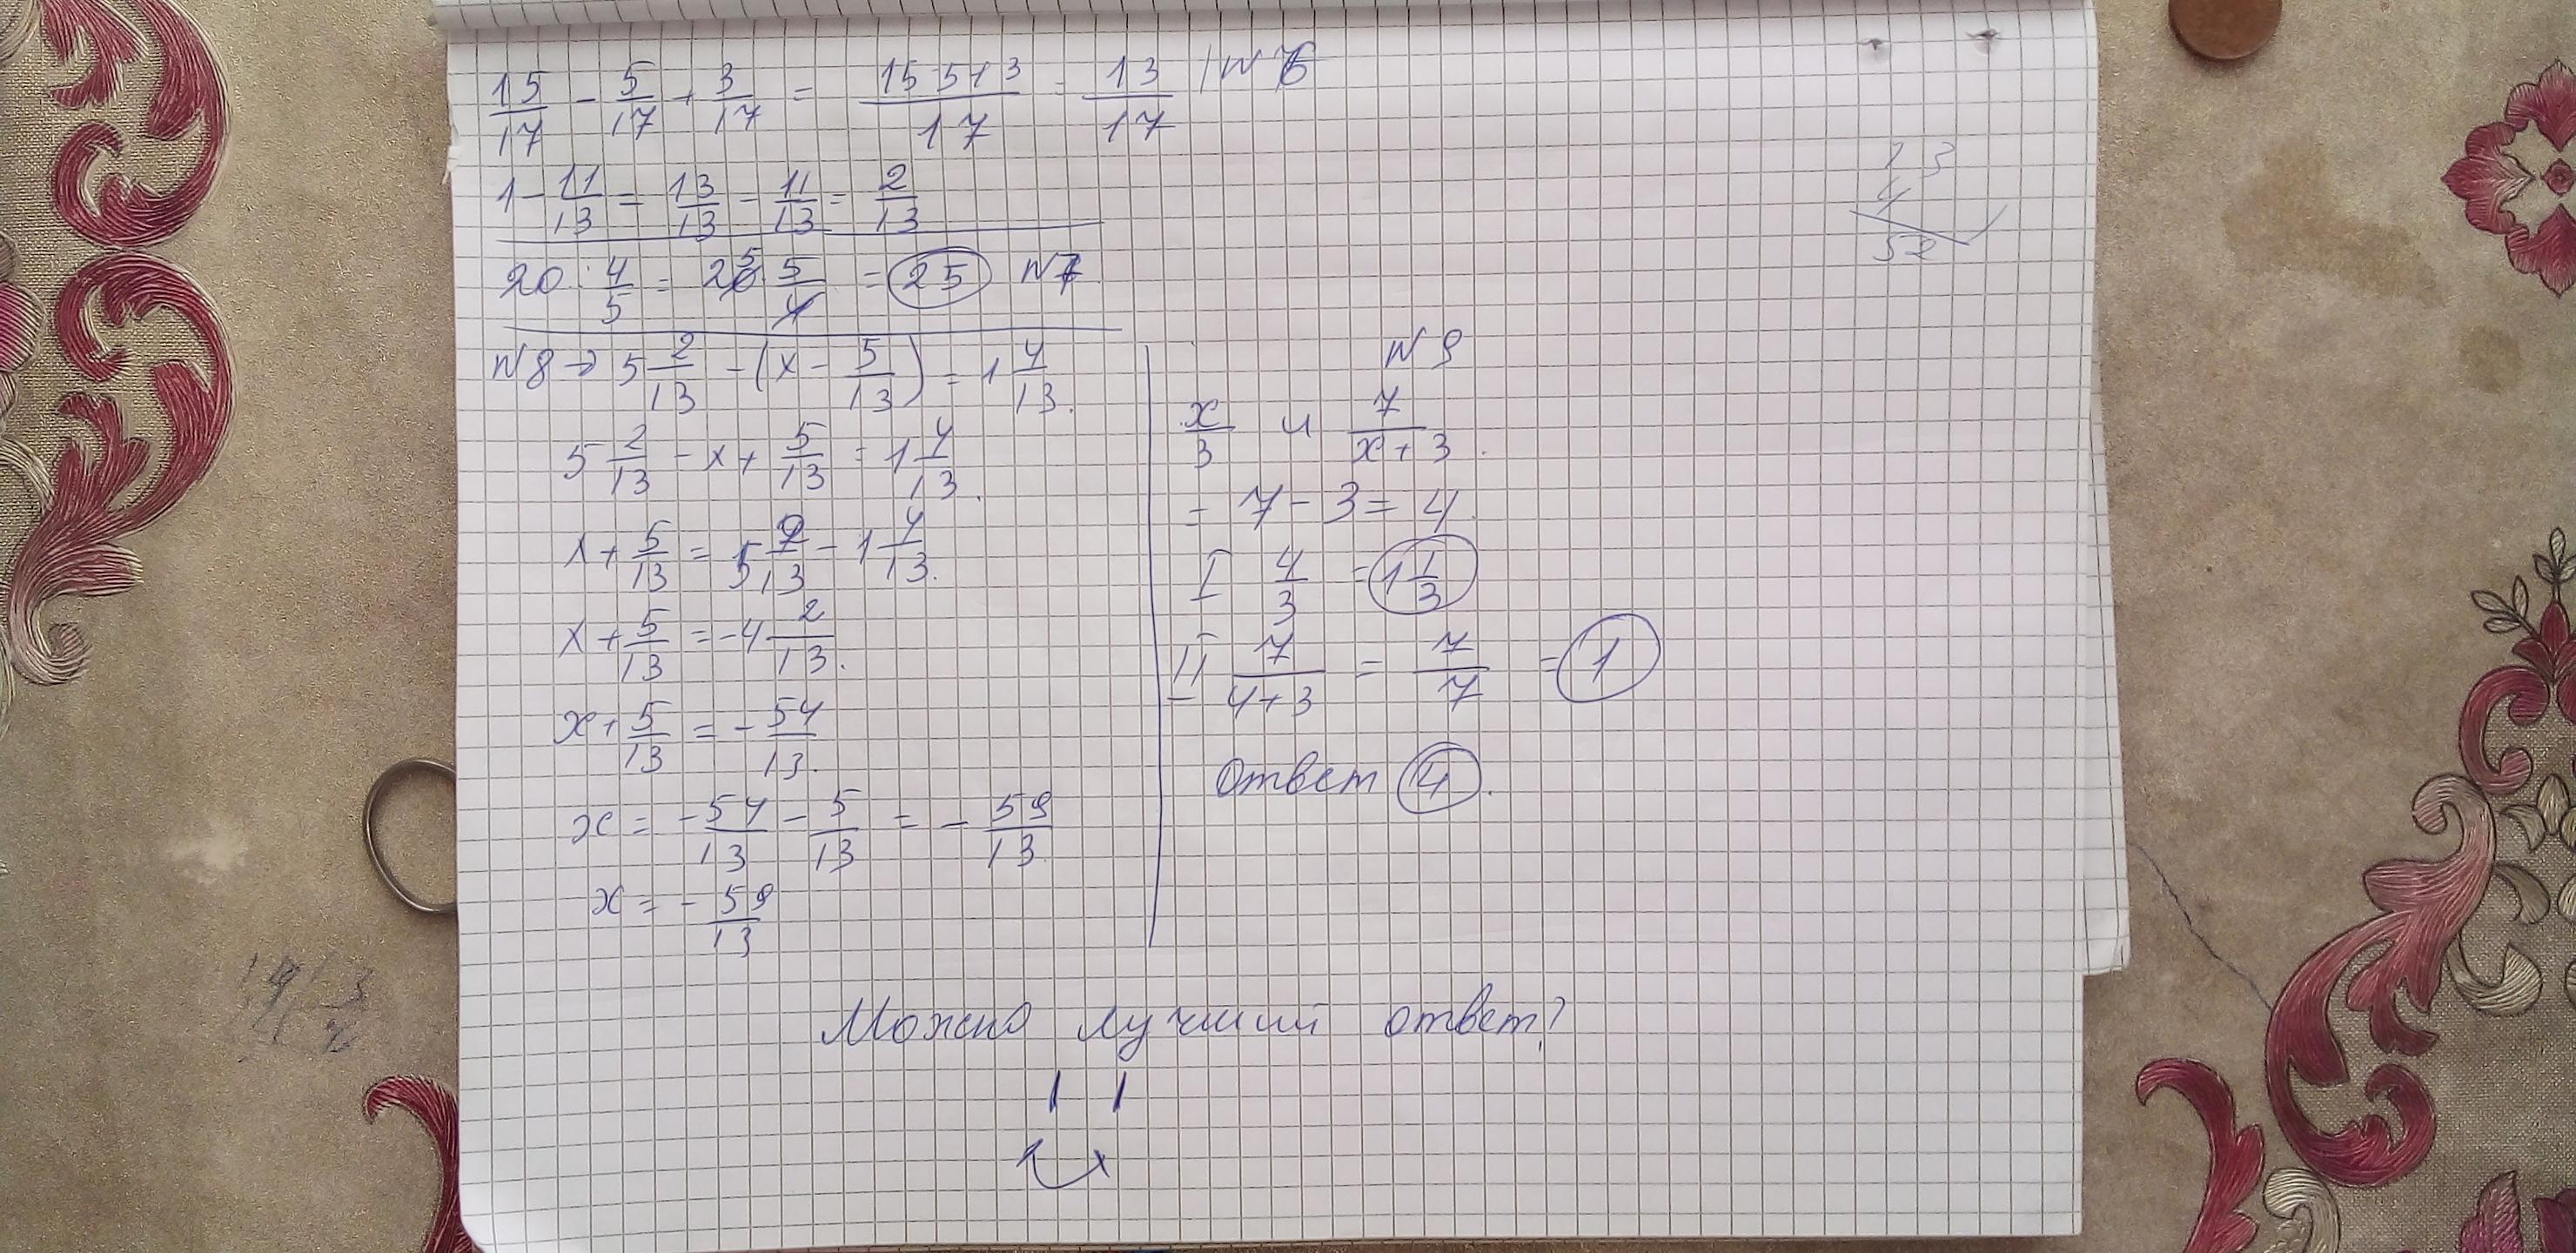 15/17 - 5/17 + 3/17 = 15-5+3/17 = 13/17 /N 6
1 - 11/13 = 13/13 - 11/13 = 2/13
20 : 4/5 = 20 5 · 5/4 = 25 N7
N8 → 5 2/13 - (x - 5/13) = 1 4/13.
5 2/13 - x + 5/13 = 1 4/13.
x + 5/13 = 5 2/13 - 1 4/13.
x + 5/13 = -4 2/13.
x + 5/13 = - 54/13.
x = - 54/13 - 5/13 = - 59/13
x = - 59/13
N 9
x/3 и 7/x+3.
= 7 - 3 = 4.
I 4/3 = 1 1/3
II 7/4+3 = 7/7 = 1
Ответ 4.
13
4
52
Можно лучший ответ?